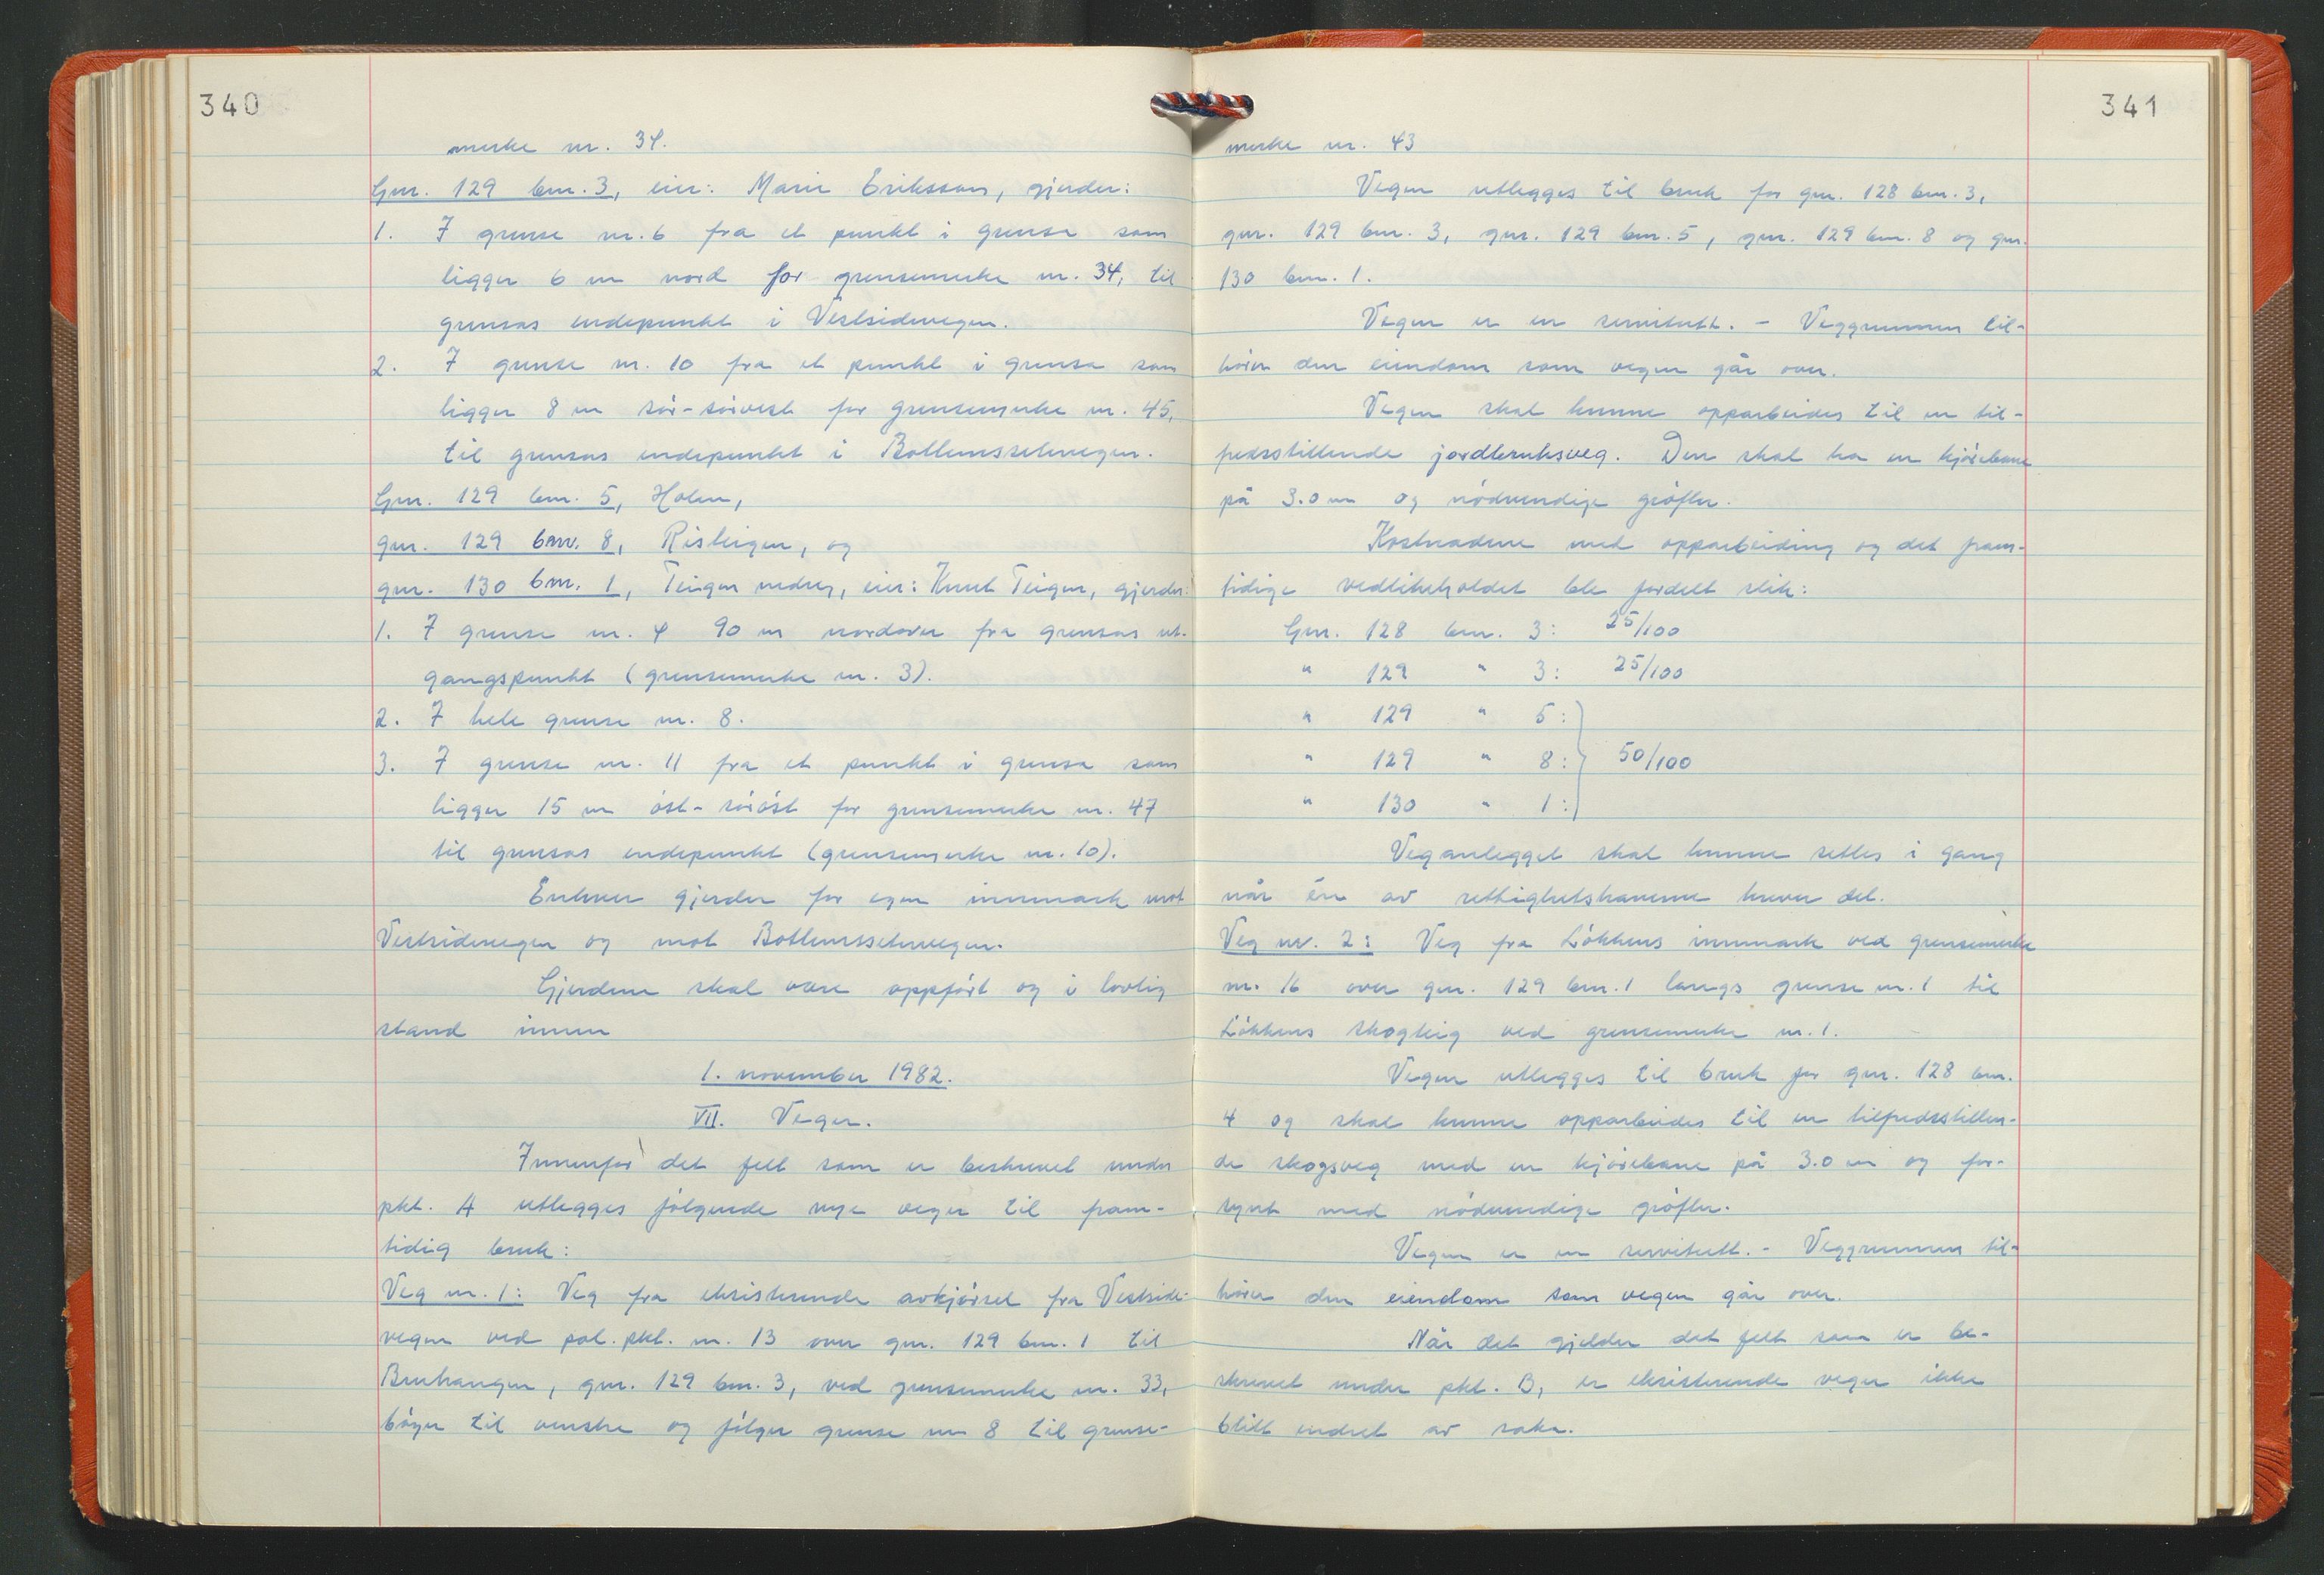 340
merke nr. 34.
Gnr. 129 bnr. 3, eier: Marie Eriksson, gjerder:
1. I grense nr. 6 fra et punkt i grensa som
ligger 6 m nord for grensemerke nr. 34, til
grensas endepunkt i Vestsidevegen.
2. I grense nr. 10 fra et punkt i grensa som
ligger 8 m sör-sörvest for grensemerke nr. 45,
til grensas endepunkt i Bottemsetervegen.
Gnr. 129 bnr. 5, Holen,
gnr. 129 bnr. 8, Risteigen, og
gnr. 130 bnr. 1, Teigen nedre, eier: Knut Teigen, gjerder:
1. I grense nr. 4 90 m nordover fra grensas ut-
gangspunkt (grensemerke nr. 3).
2. I hele grense nr. 8.
3. I grense nr. 11 fra et punkt i grensa som
ligger 15 m öst-söröst for grensemerke nr. 47
til grensas endepunkt (grensemerke nr. 10).
Enhver gjerder for egen innmark mot
Vestsidevegen og mot Bottemsetervegen.
Gjerdene skal være oppfört og i lovlig
stand innen
1. november 1982.
VII. Veger.
Innenfor det felt som er beskrevet under
pkt. A utlegges fölgende nye veger til fram-
tidig bruk:
Veg nr. 1: Veg fra eksisterende avkjörsel fra Vestside-
vegen ved pol. pkt. nr. 13 over gnr. 129 bnr. 1 til
Bruhaugen, gnr. 129 bnr. 3, ved grensemerke nr. 33,
böyer til venstre og fölger grense nr 8 til grense-
341
merke nr. 43
Vegen utlegges til bruk for gnr. 128 bnr. 3,
gnr. 129 bnr. 3, gnr. 129 bnr. 5, gnr. 129 bnr. 8 og gnr.
130 bnr. 1.
Vegen er en servitutt. - Veggrunnen til-
hörer den eiendom som vegen går over.
Vegen skal kunne opparbeides til en til-
fredsstillende jordbruksveg. Den skal ha en kjörebane
på 3.0 m og nödvendige gröfter.
Kostnadene med opparbeiding og det fram-
tidige vedlikeholdet ble fordelt slik:
Gnr. 128 bnr. 3: 25/100
" 129 " 3: 25/100
" 129 " 5:
" 129 " 8: 50/100
" 130 " 1:
Veganlegget skal kunne settes i gang
når én av rettighetshaverne krever det.
Veg nr. 2: Veg fra Lökkens innmark ved grensemerke
nr. 16 over gnr. 129 bnr. 1 langs grense nr. 1 til
Lökkens skogteig ved grensemerke nr. 1.
Vegen utlegges til bruk for gnr. 128 bnr.
4 og skal kunne opparbeides til en tilfredsstillen-
de skogsveg med en kjörebane på 3.0 m og for-
synt med nödvendige gröfter.
Vegen er en servitutt. - Veggrunnen til-
hörer den eiendom som vegen går over.
Når det gjelder det felt som er be-
skrevet under pkt. B, er eksisterende veger ikke
blitt endret av saka.